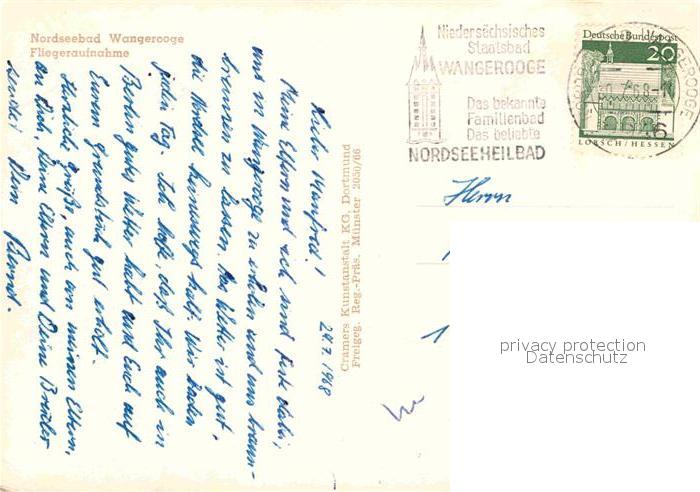 Nordseebad Wangerooge
Fliegeraufnahme
Niedersächsisches
Staatsbad
WANGEROOGE
Das bekannte
Familienbad
Das beliebte
NORDSEEHEILBAD
Deutsche Bundespost
20
LORSCH/HESSEN
WANGEROOGE
Herrn
privacy protection
Datenschutz
Cramers Kunstanstalt KG. Dortmund
Freigeg. Reg.-Präs. Münster 2050/66
29.7.1968
Lieber Manfred!
Meine Eltern und ich sind feste dabei,
uns in Wangerooge zu erholen und uns braun-
brennen zu lassen. Das Wetter ist gut,
die Nordsee keineswegs kalt. Wir baden
jeden Tag. Ich hoffe, daß Ihr auch in
Borkum gutes Wetter habt und Euch auf
Eurem Grundstück gut erholt.
Herzliche Grüße, auch von meinen Eltern,
an Dich, Deine Eltern und Deine Brüder
sendet Dein Bernt.